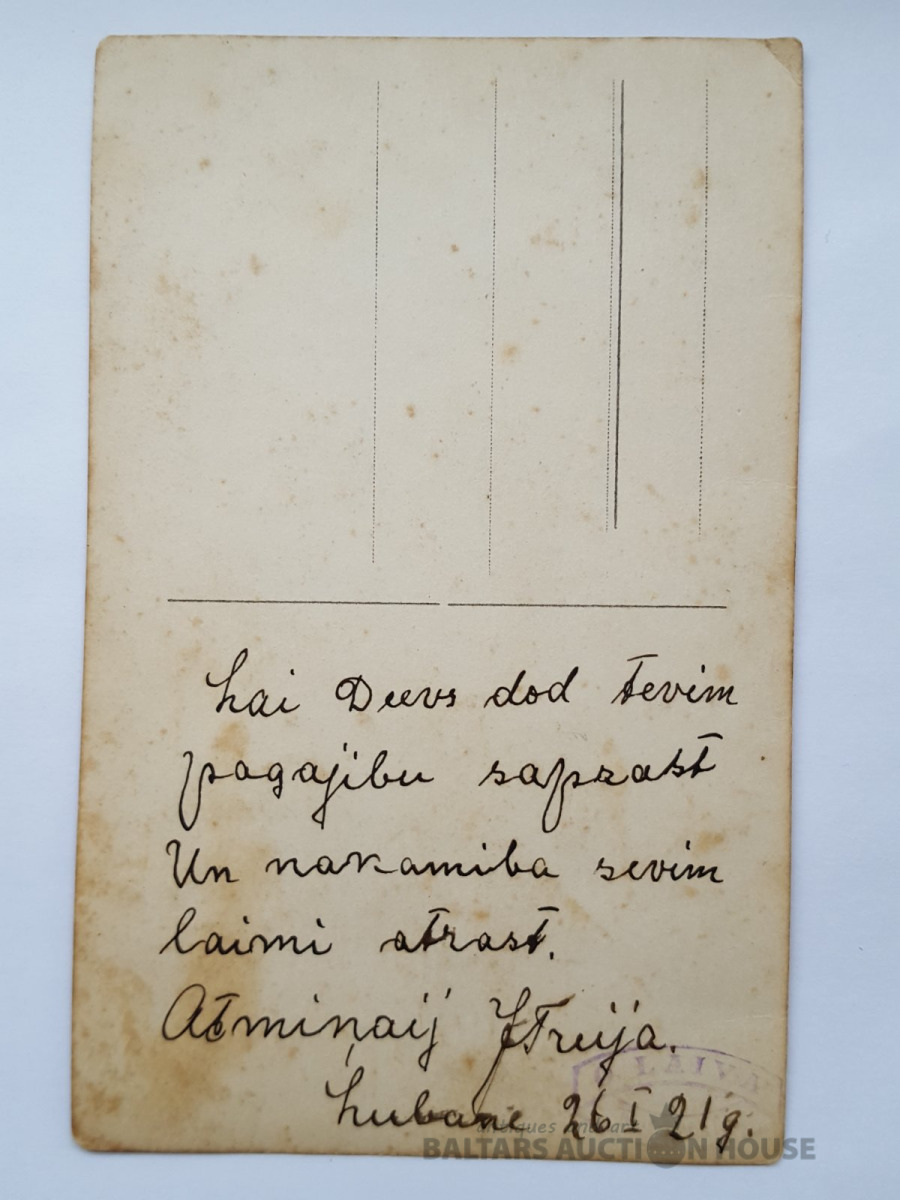 Lai Deevs dod tevim
pagajibu saprast
Un nakamiba sevim
laimi atrast.
Atmiņaij JFreija.
Ļubane 26 I 21 g.
LAIVA
antiques
BALTARS AUCTION HOUSE